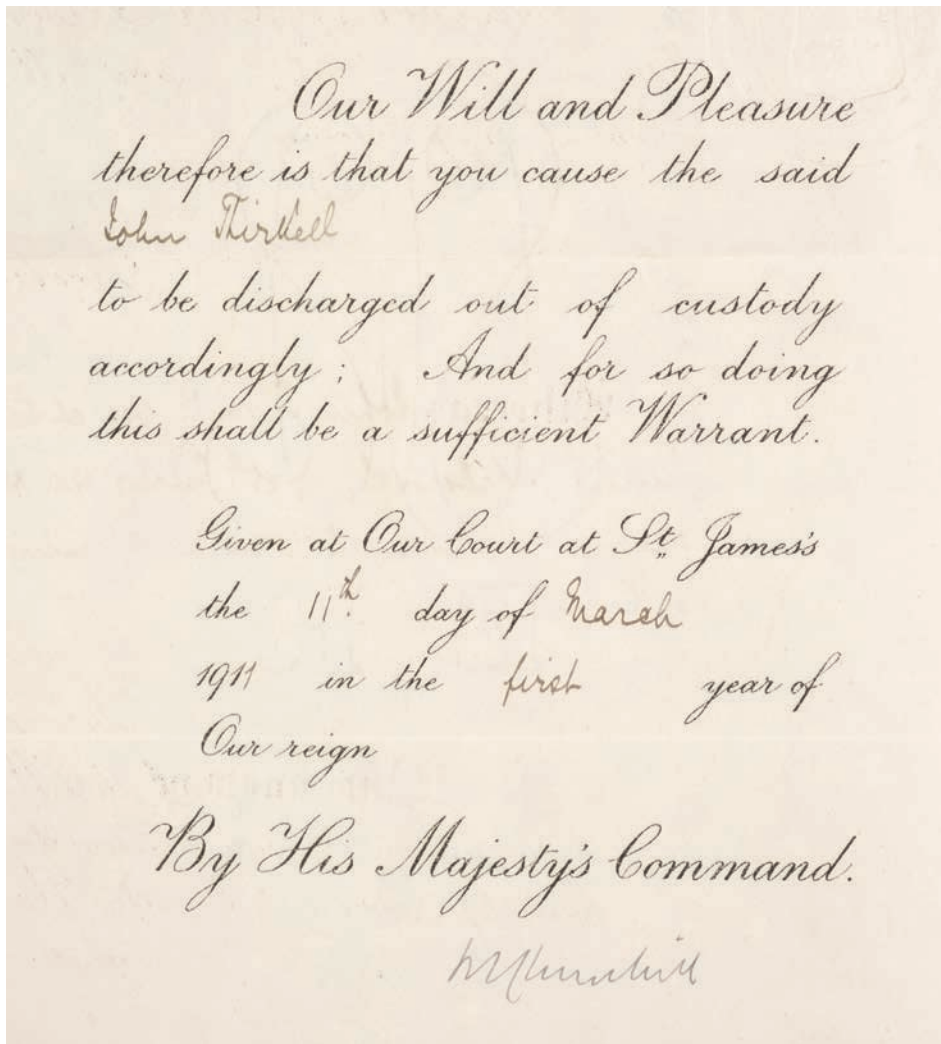 Our Will and Pleasure
therefore is that you cause the said
John Thirkell
to be discharged out of custody
accordingly; And for so doing
this shall be a sufficient Warrant.
Given at Our Court at St. James's
the 11th. day of March
1911 in the first year of
Our reign
By His Majesty's Command.
WSChurchill